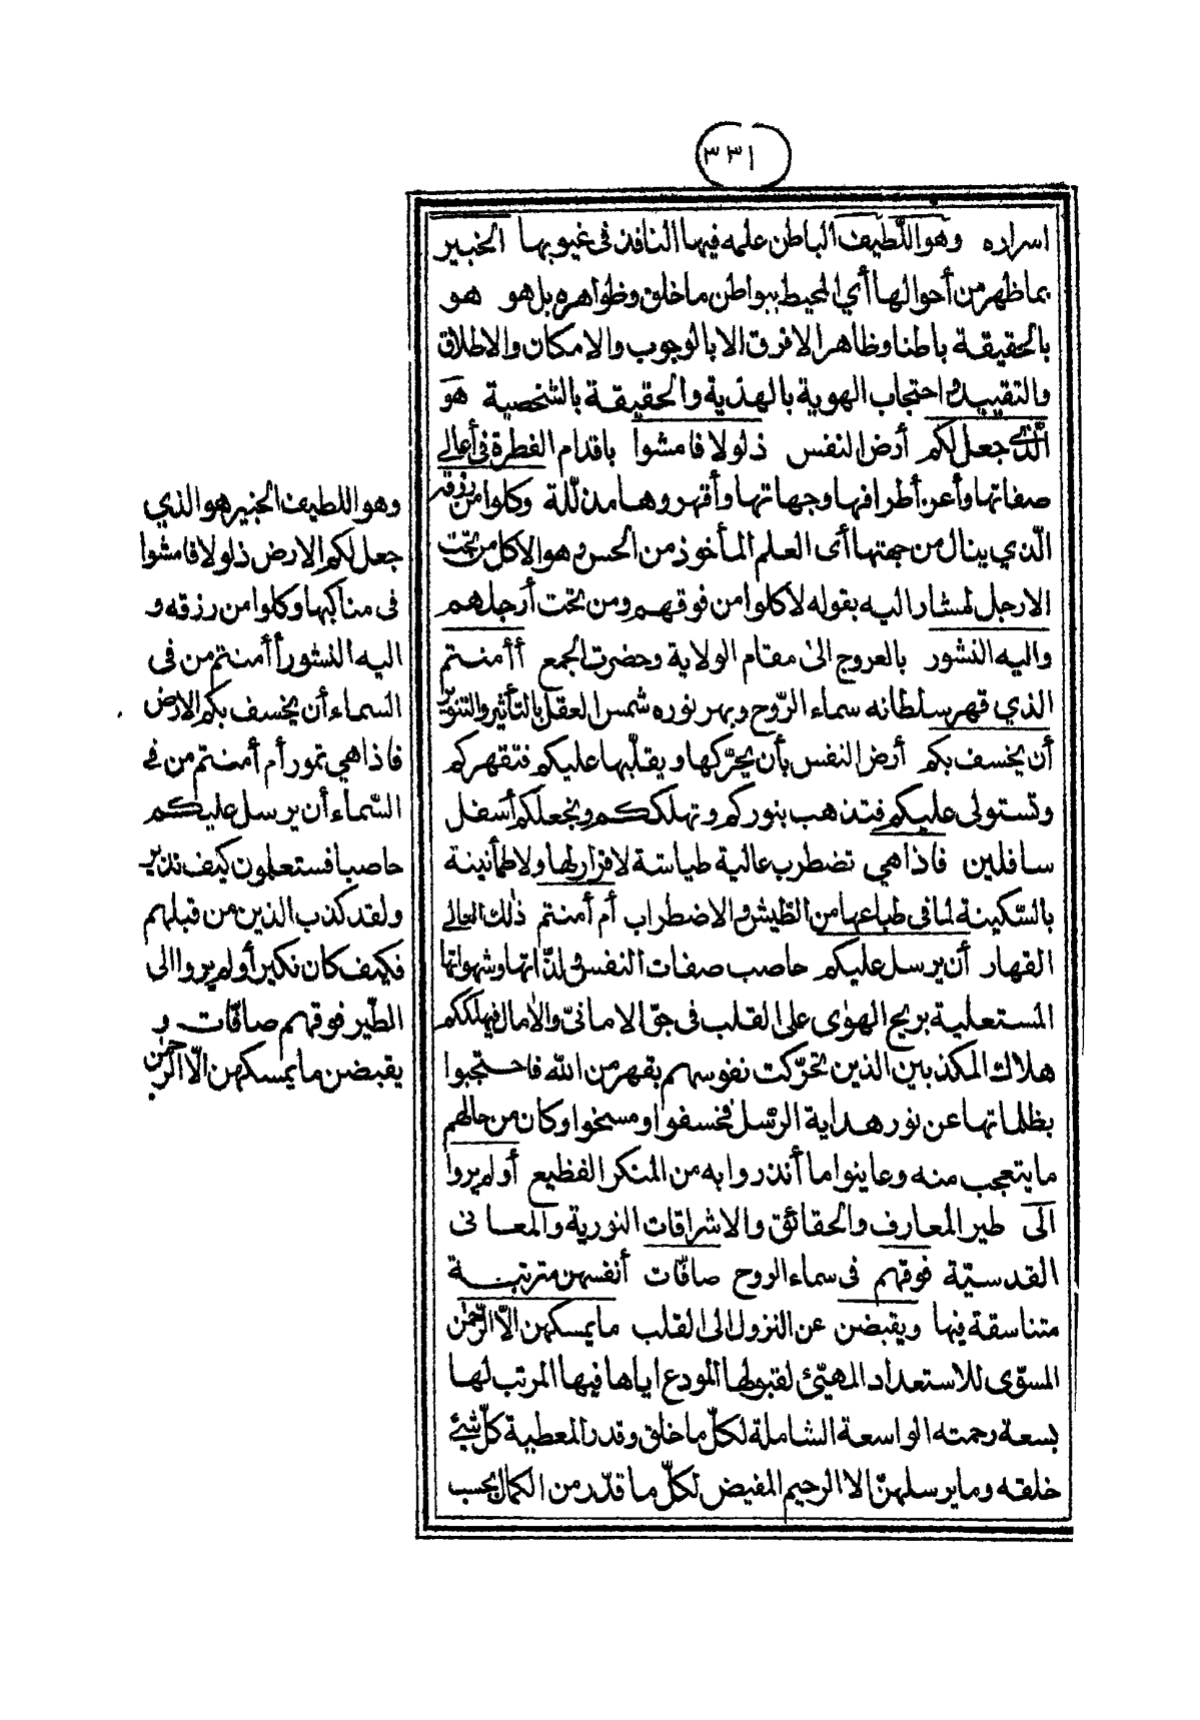 ٣٣١
اسراره وهو اللّطيف الباطن علمه فيها النافذ فى غيوبها الخبير
بما ظهر من أحوالها أي المحيط ببواطن ما خلق وظواهره بل هو هو
بالحقيقة باطنا وظاهرا لا فرق الا بالوجوب والامكان والاطلاق
والتقييد واحتجاب الهوية بالهذية والحقيقة بالشخصية هو
الّذي جعل لكم أرض النفس ذلولا فامشوا باقدام الفطرة فى أعالي
صفاتها وأعز أطرافها وجهاتها وأقهروها مذلّلة وكلوا من رزقه
الّذي ينال من جهتها أى العلم المأخوذ من الحس وهو الاكل من تحت
الارجل لمشار اليه بقوله لاكلوا من فوقهم ومن تحت أرجلهم
واليه النشور بالعروج الى مقام الولاية وحضرت الجمع أأمنتم
الذي قهر سلطانه سماء الرّوح وبهر نوره شمس العقل بالتأثير والتنوير
أن يخسف بكم أرض النفس بأن يحرّكها ويقلّبها عليكم فتقهركم
وتستولى عليكم فتذهب بنوركم وتهلككم ويجعلكم أسفل
سافلين فاذا هي تضطرب عالية طياشة لا قرار لها ولا طمأنينة
بالسّكينة لما فى طباعها من الطّيش والاضطراب أم أمنتم ذلك العالي
القهار أن يرسل عليكم حاصب صفات النفس ولذّاتها وشهواتها
المستعلية بريح الهوى على القلب فى جوّ الامانىّ والامال فيهلككم
هلاك المكذبين الذين تحرّكت نفوسهم بقهر من الله فاحتجبوا
بظلماتها عن نور هداية الرسل فخسفوا ومسخوا وكان من حالهم
ما يتعجب منه وعاينوا ما أنذروا به من المنكر الفظيع أولم يروا
الى طير المعارف والحقائق والاشراقات النورية والمعانى
القدسيّة فوقهم فى سماء الروح صافّات أنفسهن مترتبة
متناسقة فيها ويقبضن عن النزول الى القلب ما يمسكهن الّا الرّحمن
المسوّى للاستعداد المهيّئ لقبولها المودع اياها فيها المرتب لها
بسعة رحمته الواسعة الشاملة لكلّ ما خلق وقدر المعطية كلّ شئ
خلقه وما يرسلهنّ الا الرحيم المفيض لكلّ ما قدّر من الكمال بحسب
وهو اللطيف الخبير هو الذي
جعل لكم الارض ذلولا فامشوا
فى مناكبها وكلوا من رزقه و
اليه النشور أأمنتم من فى
السماء أن يخسف بكم الارض
فاذا هي تمور أم أمنتم من في
السّماء أن يرسل عليكم
حاصبا فستعلمون كيف نذير
ولقد كذب الذين من قبلهم
فكيف كان نكير أولم يروا الى
الطّير فوقهم صافّات و
يقبضن ما يمسكهن الّا الرّحمن